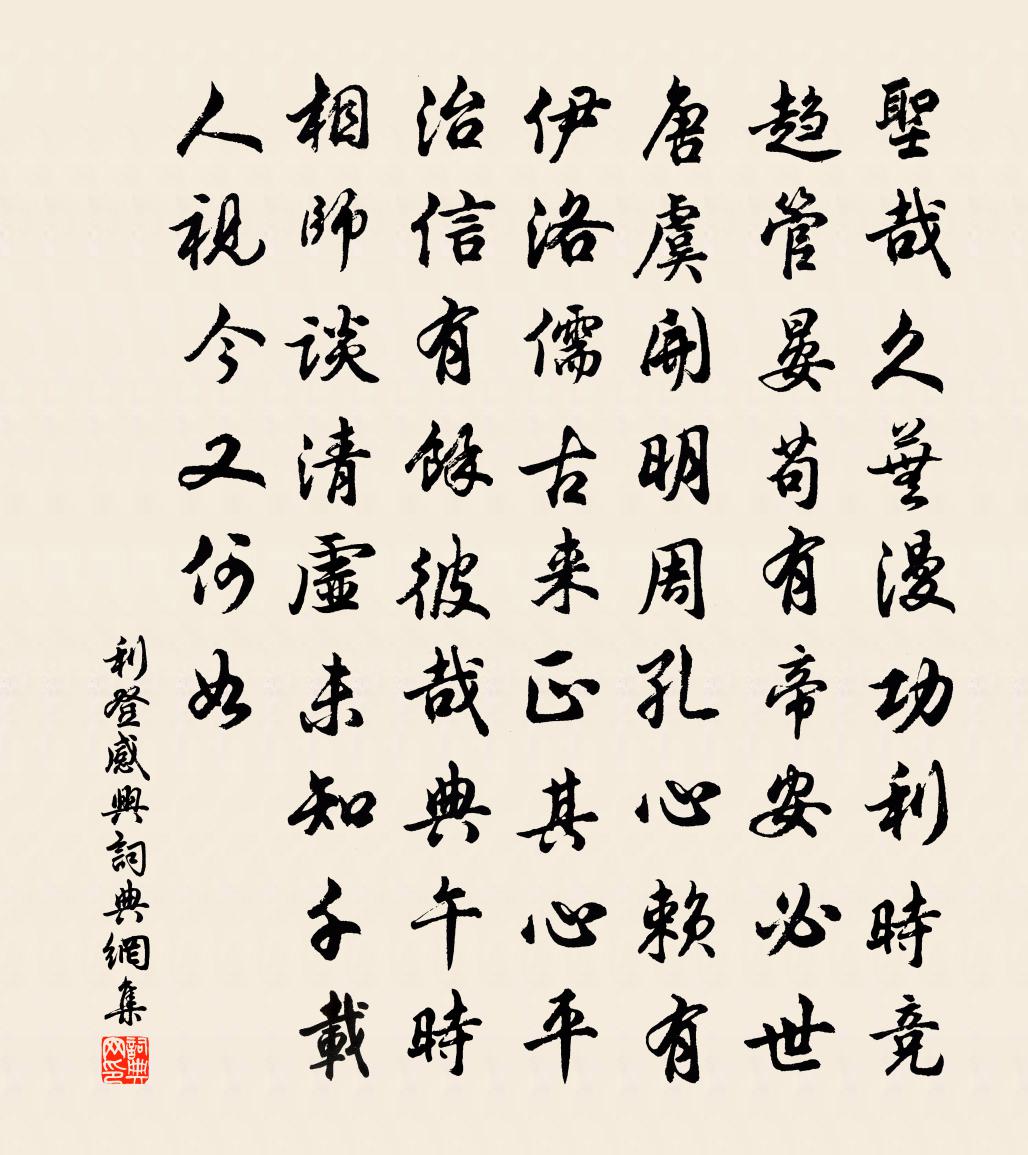 聖哉久蕪漫功利時競
趋管晏苟有帝安必世
唐虞開明周孔心賴有
伊洛儒古来正其心平
治信有餘彼哉典午時
相師談清虛未知千載
人視今又何如
利登感興詞典網集
詞典网印